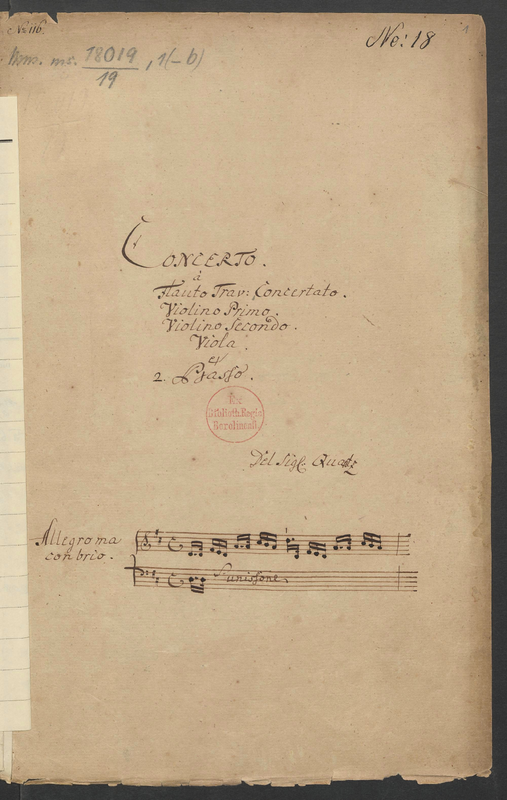 No 116.
Ne: 18
1
Mus. ms. 18019/19, 1(-b)
CONCERTO.
à
Flauto Trav: Concertato.
Violino Primo.
Violino Secondo.
Viola.
et
2. Basso.
Biblioth. Regia
Berolinens.
Del Sigr. Quantz
Allegro ma
con brio.
unissone